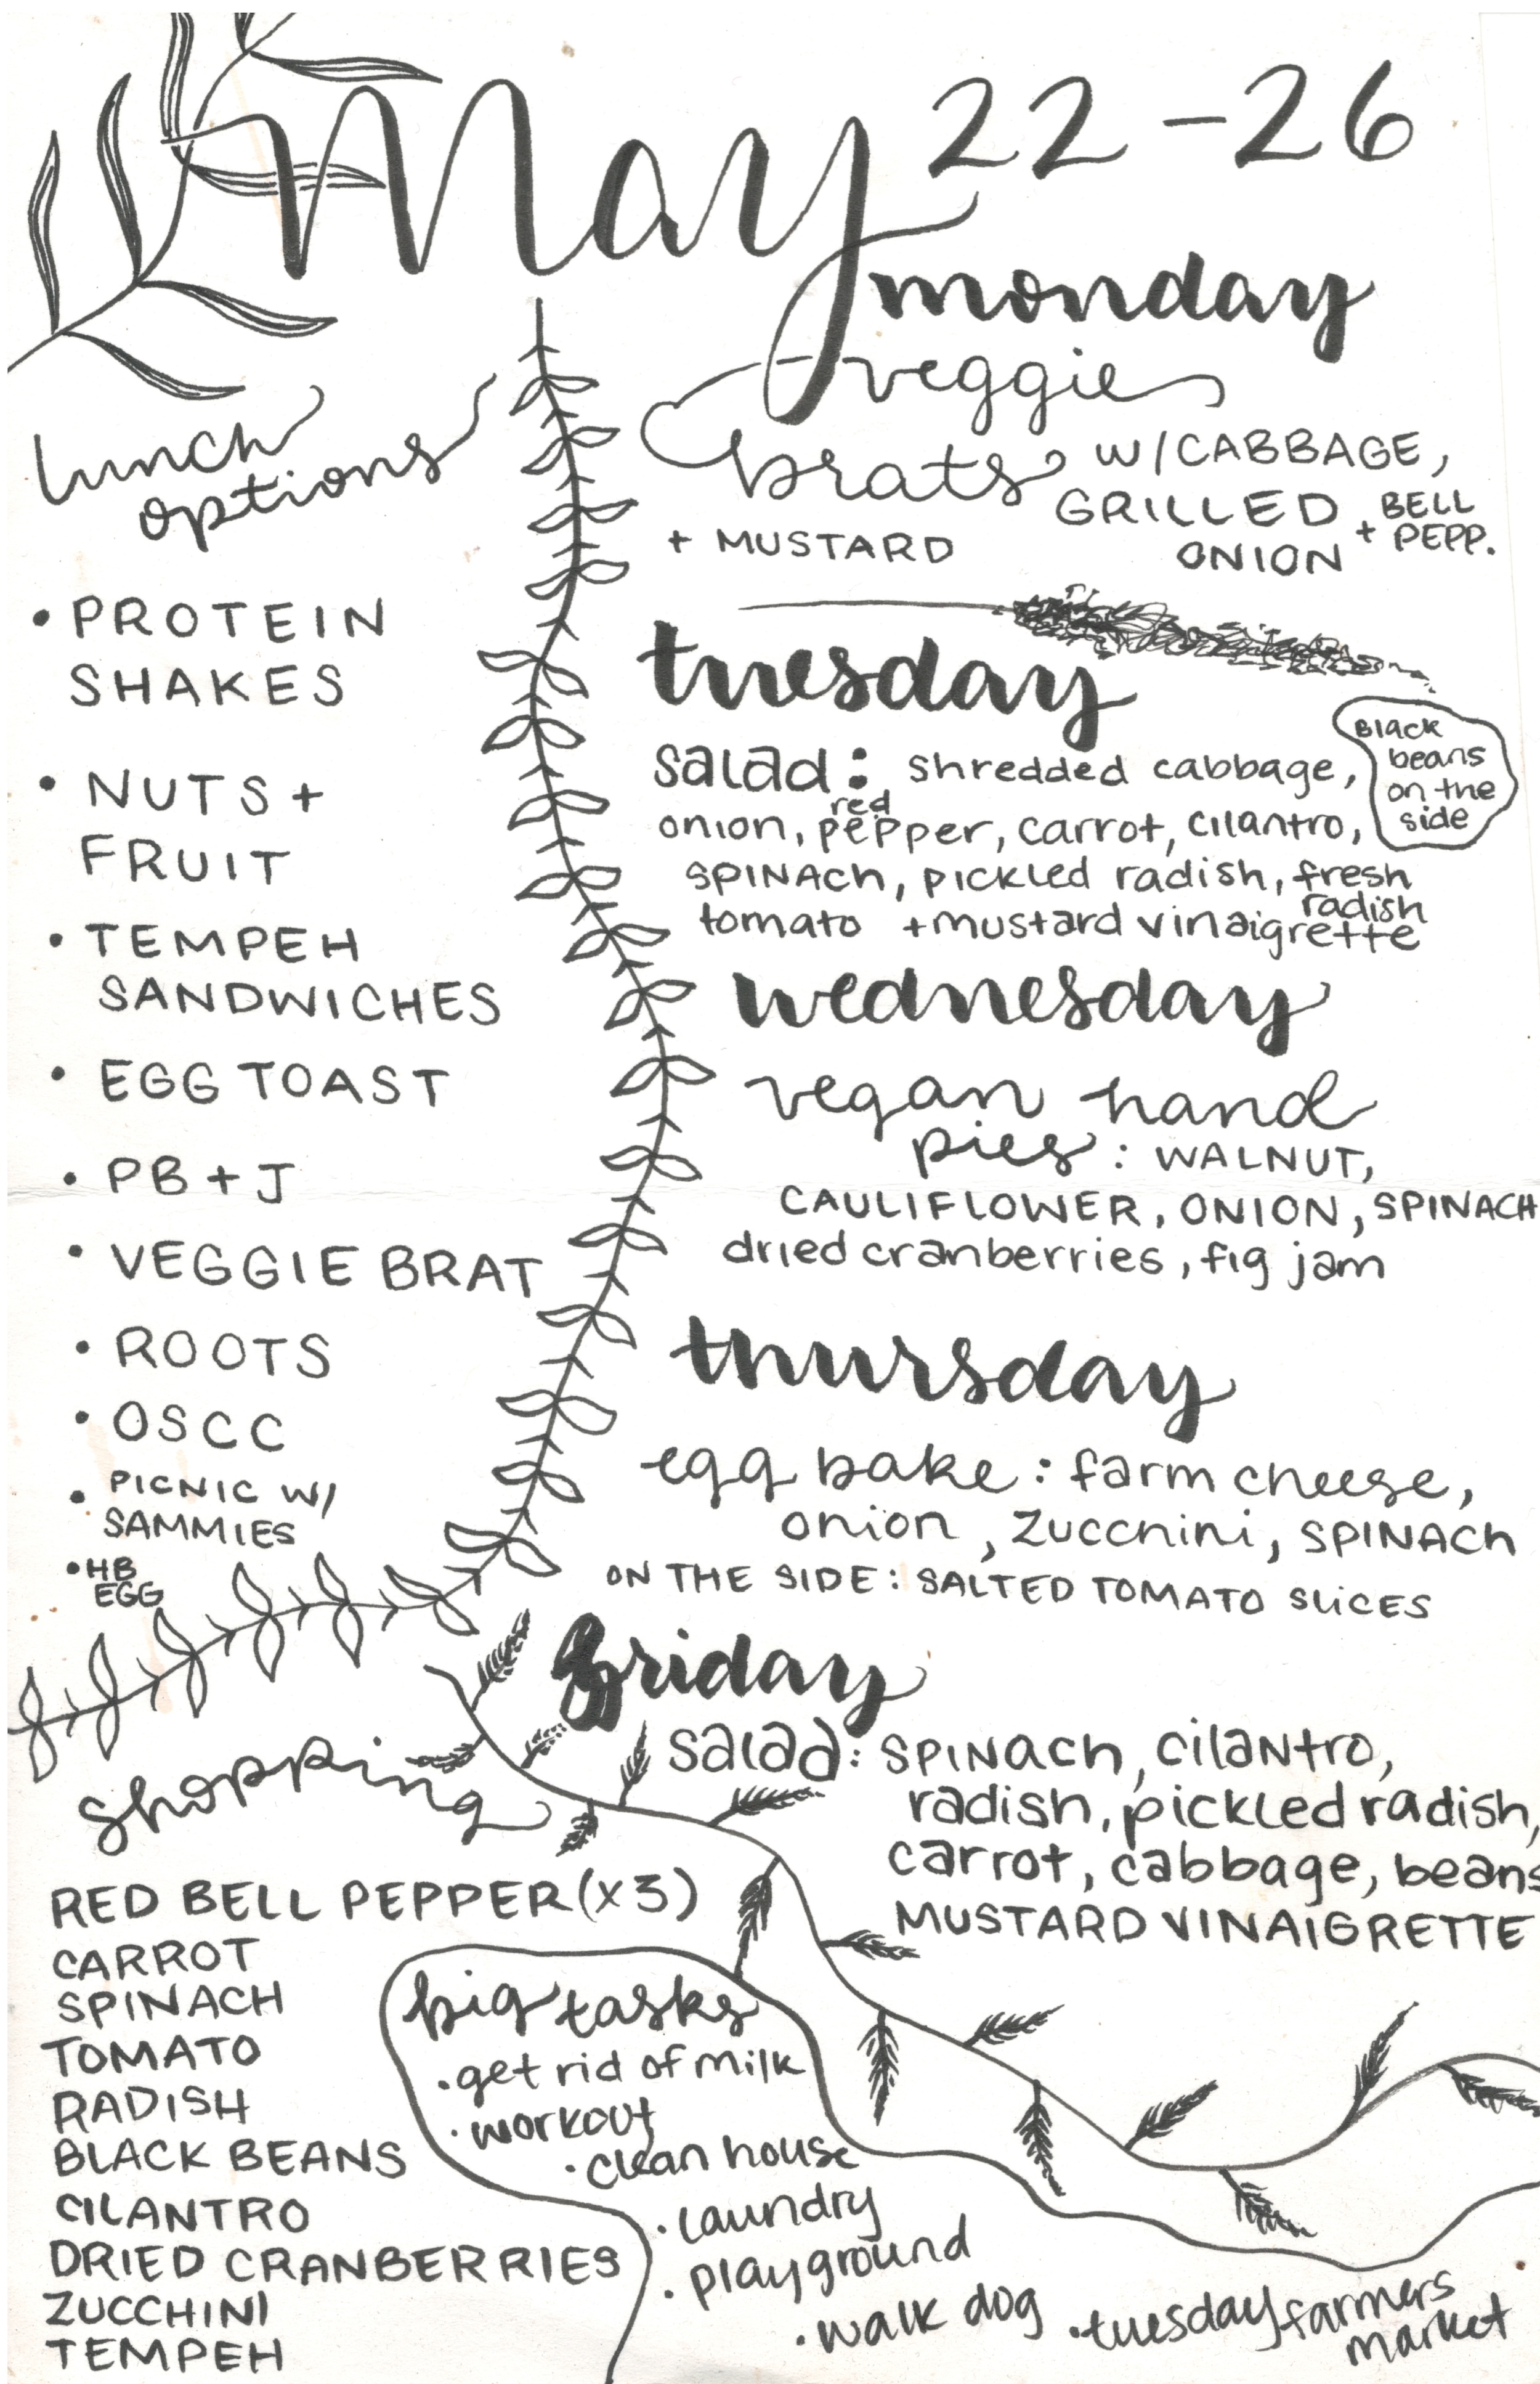 May 22-26
lunch
options
• PROTEIN
SHAKES
• NUTS +
FRUIT
• TEMPEH
SANDWICHES
• EGG TOAST
• PB + J
• VEGGIE BRAT
• ROOTS
• OSCC
• PICNIC W/
SAMMIES
• HB
EGG
monday
veggie
brats W/CABBAGE,
GRILLED + BELL
ONION PEPP.
+ MUSTARD
tuesday
salad: shredded cabbage,
onion, red pepper, carrot, cilantro,
SPINACH, PICKLED radish, fresh radish
tomato + mustard vinaigrette
Black
beans
on the
side
wednesday
vegan hand
pies: WALNUT,
CAULIFLOWER, ONION, SPINACH
dried cranberries, fig jam
thursday
egg bake: farm cheese,
onion, zucchini, SPINACH
ON THE SIDE: SALTED TOMATO SLICES
friday
salad: SPINACH, cilantro,
radish, pickled radish,
carrot, cabbage, beans
MUSTARD VINAIGRETTE
shopping
RED BELL PEPPER (x3)
CARROT
SPINACH
TOMATO
RADISH
BLACK BEANS
CILANTRO
DRIED CRANBERRIES
ZUCCHINI
TEMPEH
big tasks
• get rid of milk
• workout
• clean house
• laundry
• playground
• walk dog
• tuesday farmers
market